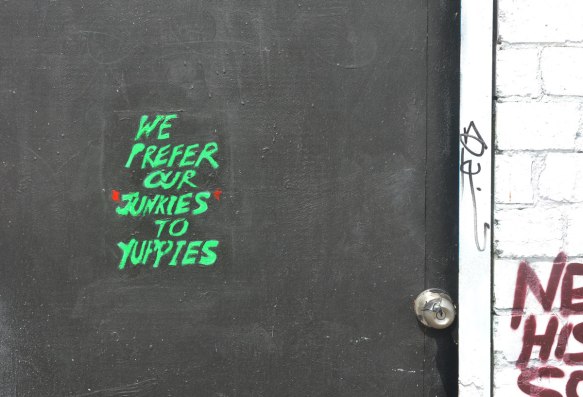 WE
PREFER
OUR
"JUNKIES"
TO
YUPPIES
HIS